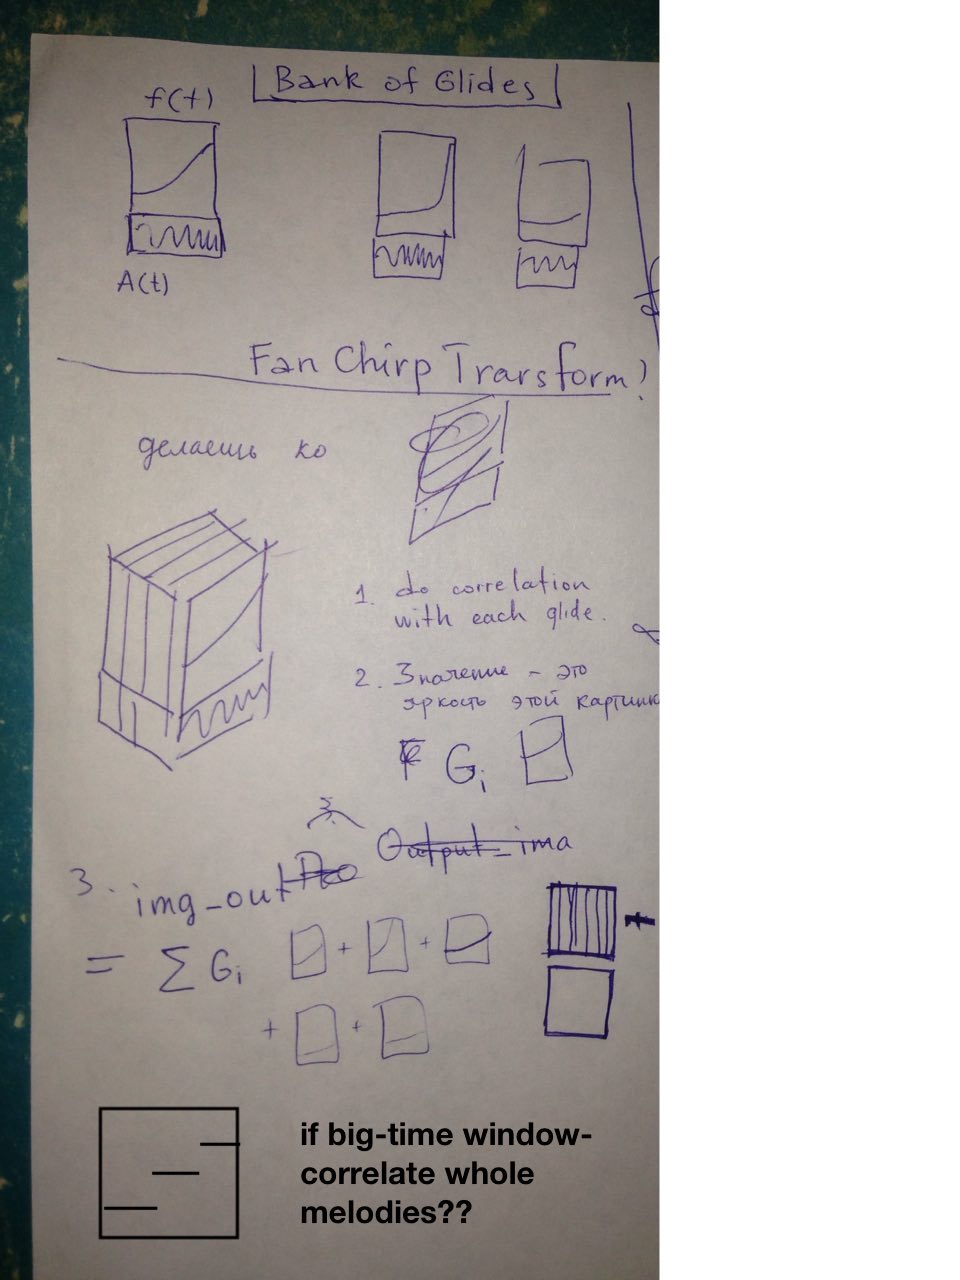 Bank of Glides
f(t)
A(t)
Fan Chirp Transform?
делаешь ко
1. do correlation
with each glide.
2. Значение - это
яркость этой картинк
F Gi
3.
Output_ima
3. img_out
= Σ Gi + +
+ +
if big-time window-
correlate whole
melodies??